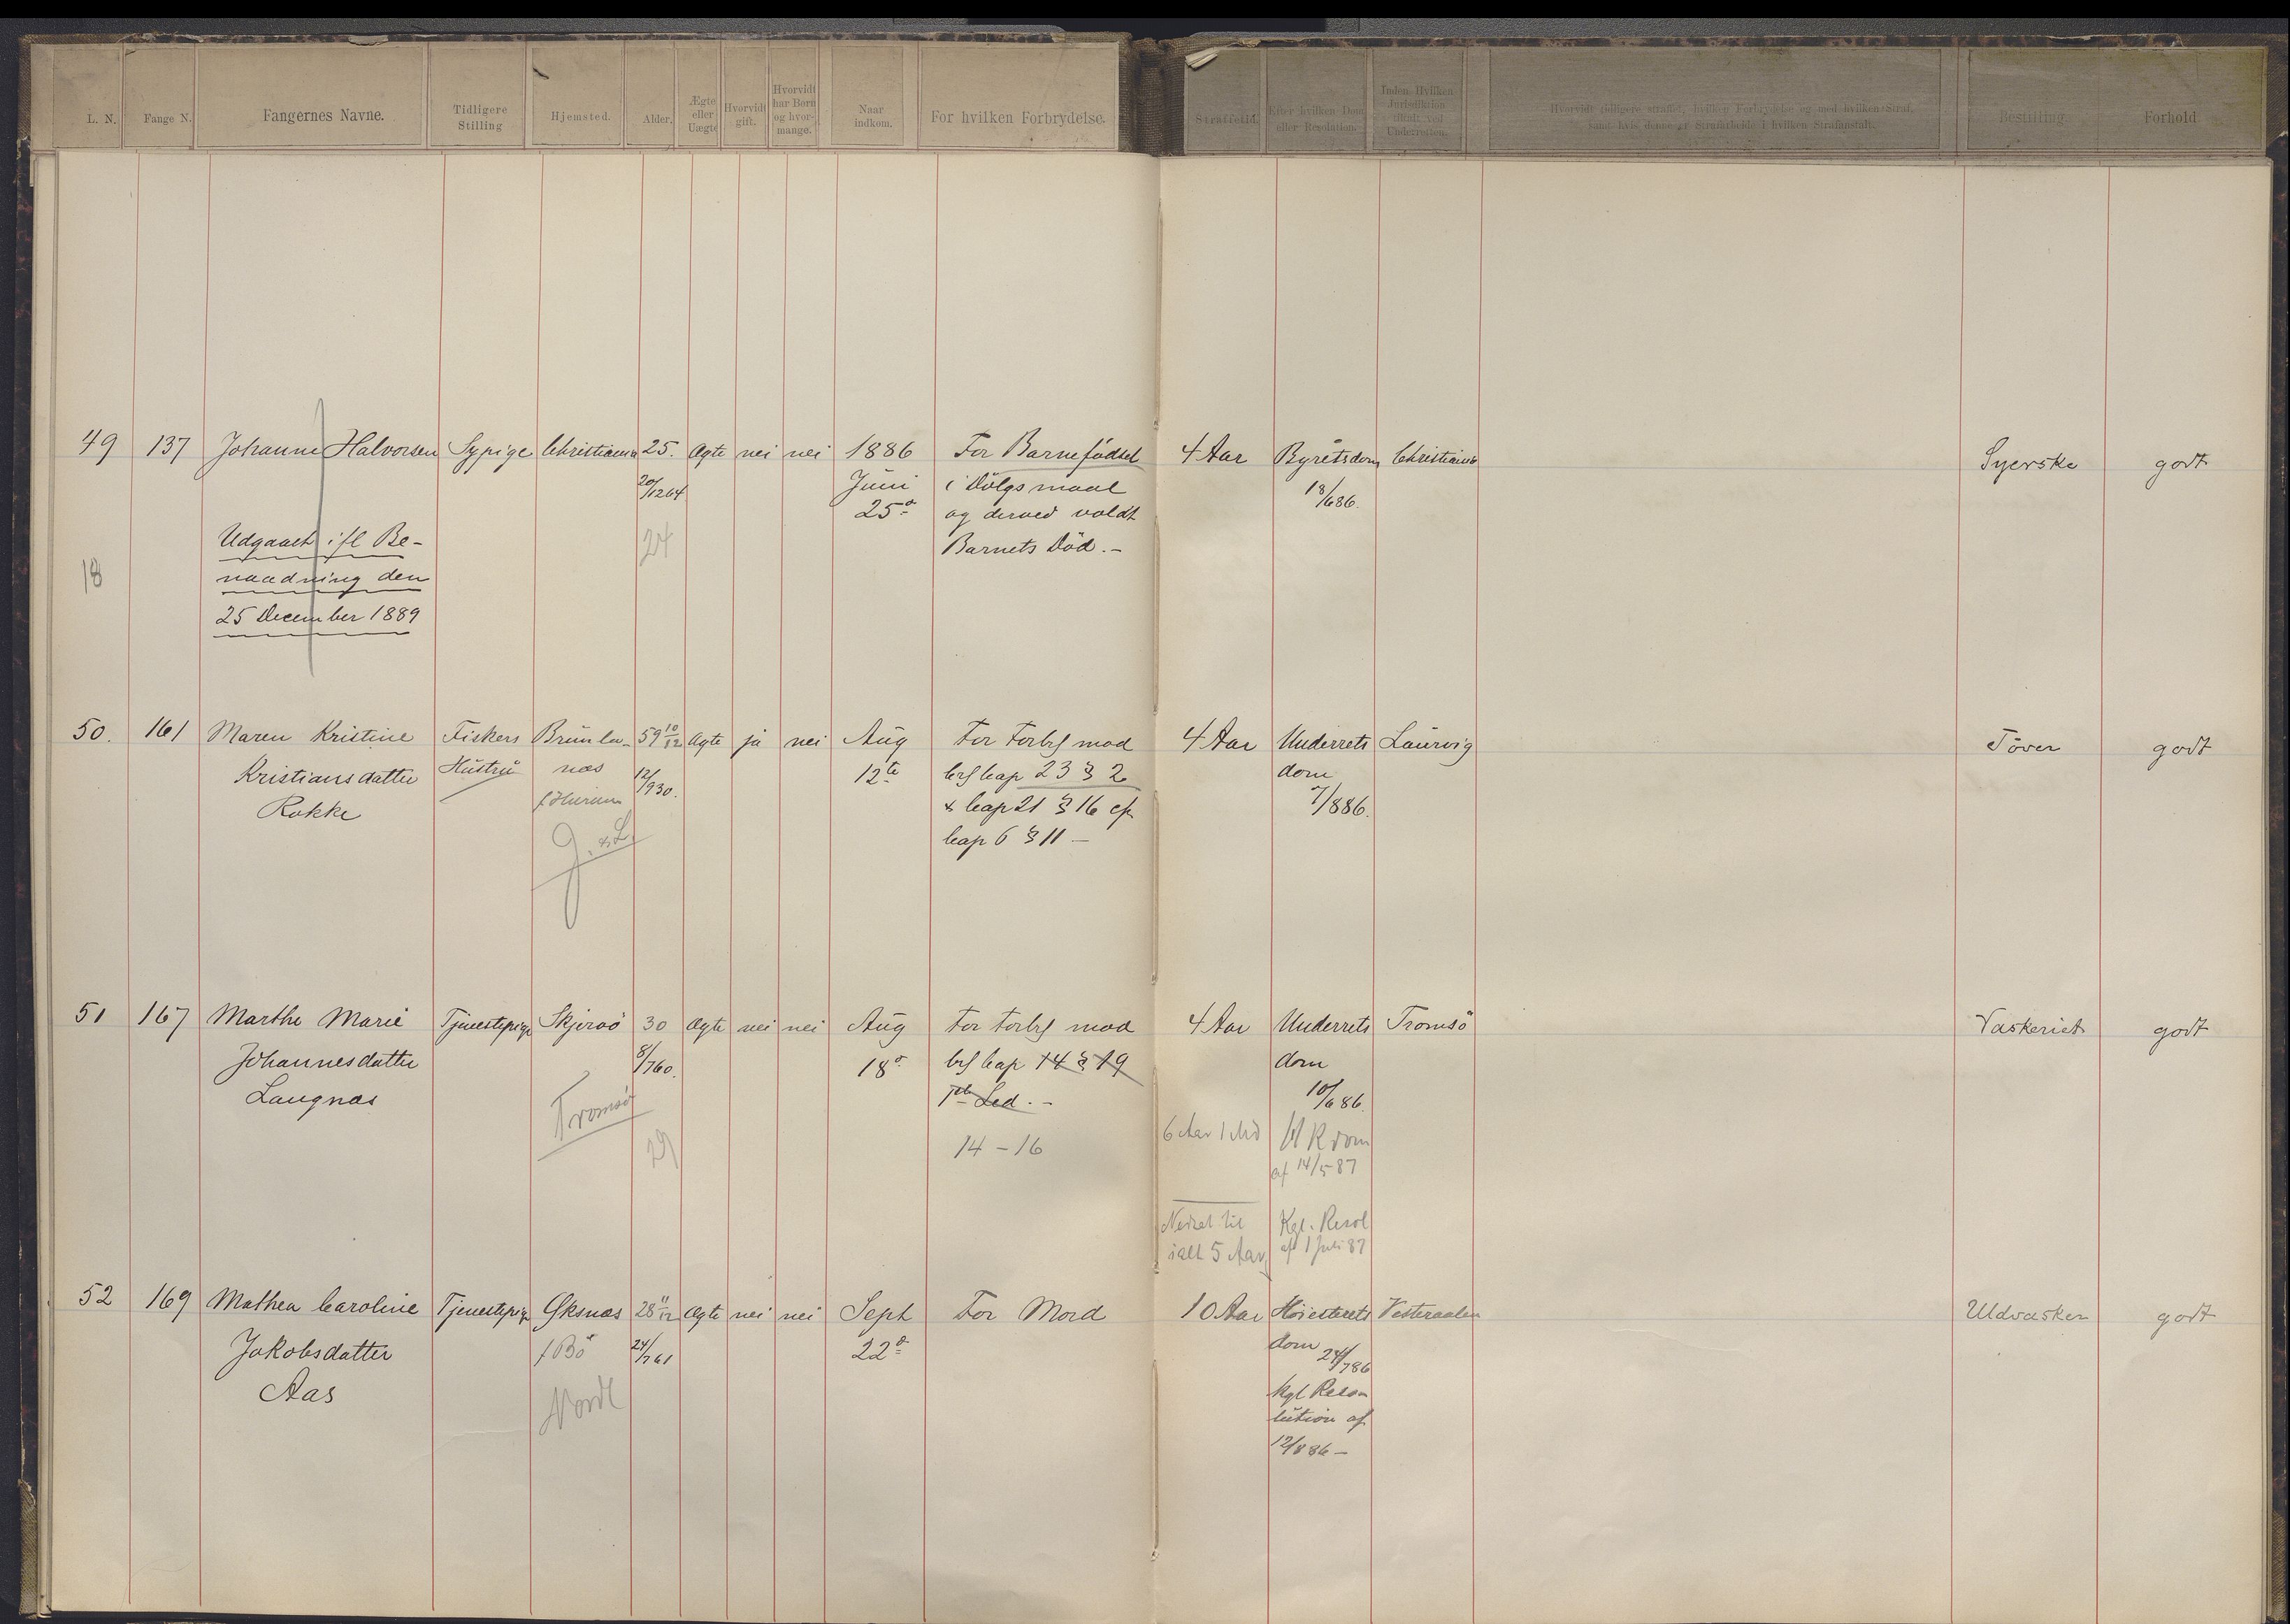 L. N. Fange N. Fangernes Navne. Tidligere Stilling Hjemsted. Alder. Ægte eller Uægte Hvorvidt gift. Hvorvidt har Børn og hvor-mange. Naar indkom. For hvilken Forbrydelse. Straffetid. Efter hvilken Dom eller Resolution. Inden Hvilken Jurisdiktion tiltalt ved Underretten. Hvorvidt tidligere straffet, hvilken Forbrydelse og med hvilken Straf, samt hvis denne er Strafarbeide i hvilken Strafanstalt. Bestilling Forhold
49 137 Johanne Halvorsen Sypige Christiania 25. Ægte nei nei 1886 For Barnefødsel 4 Aar Byretsdom Christiania Syerske godt
20/1264 Juni i Dølgsmaal 18/686.
25de og derved voldt
Udgaaet ifl Be- 24 Barnets Død.-
18 naadning den
25 December 1889
50. 161 Maren Kristine Fiskers Brunla- 59 10/12 Ægte ja nei Aug For Forbr mod 4 Aar Underrets Laurvig Töver godt
Kristiansdatter Hustru næs 12/930. 12te Crl Cap 23 § 2 dom
Rokke f Hurum & Cap 21 § 16 cfr 7/886.
J. & L. Cap 6 § 11 -
51 167 Marthe Marie Tjenestepige Skjervö 30 Ægte nei nei Aug For Forbr mod 4 Aar Underrets Tromsö Vaskeriet godt
Johannesdatter 8/760. 18de Crl Cap 14 § 19 dom
Langnæs 1ste Led.- 10/686.
Tromsö 29 14 - 16 6 Aar 1 Md HR dom
af 14/5 87
Nedsat til Kgl. Resol
ialt 5 Aar af 1 Juli 87
52 169 Mathea Caroline Tjenestepige Øksnæs 28 11/12 Ægte nei nei Sept For Mord 10 Aar Höiesterets Vesteraalen Udvasker godt
Jakobsdatter f Bö 24/761 22de dom 24/786
Aas Nordl Kgl Reso
lution af
12/886 -